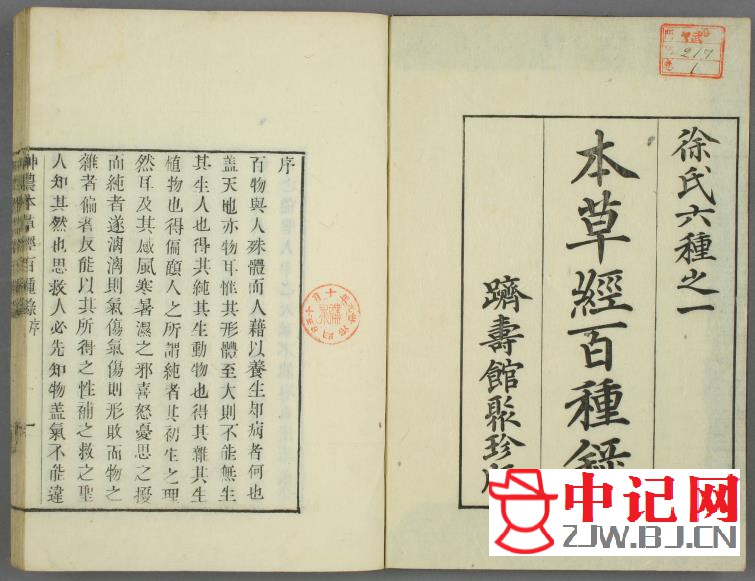 217
1
徐氏六種之一
本草經百種錄
躋壽館聚珍
序
百物與人殊體而人藉以養生却病者何也
蓋天地亦物耳惟其形體至大則不能無生
其生人也得其純其生動物也得其雜其生
植物也得其偏顧人之所謂純者其初生之理
然耳及其感風寒暑濕之邪喜怒憂思之擾
而純者遂漓漓則氣傷氣傷則形敗而物之
雜者偏者反能以其所得之性補之救之聖
人知其然也思救人必先知物蓋氣不能違
神農本草經百種錄 序 一
中记网
ZJW.BJ.CN